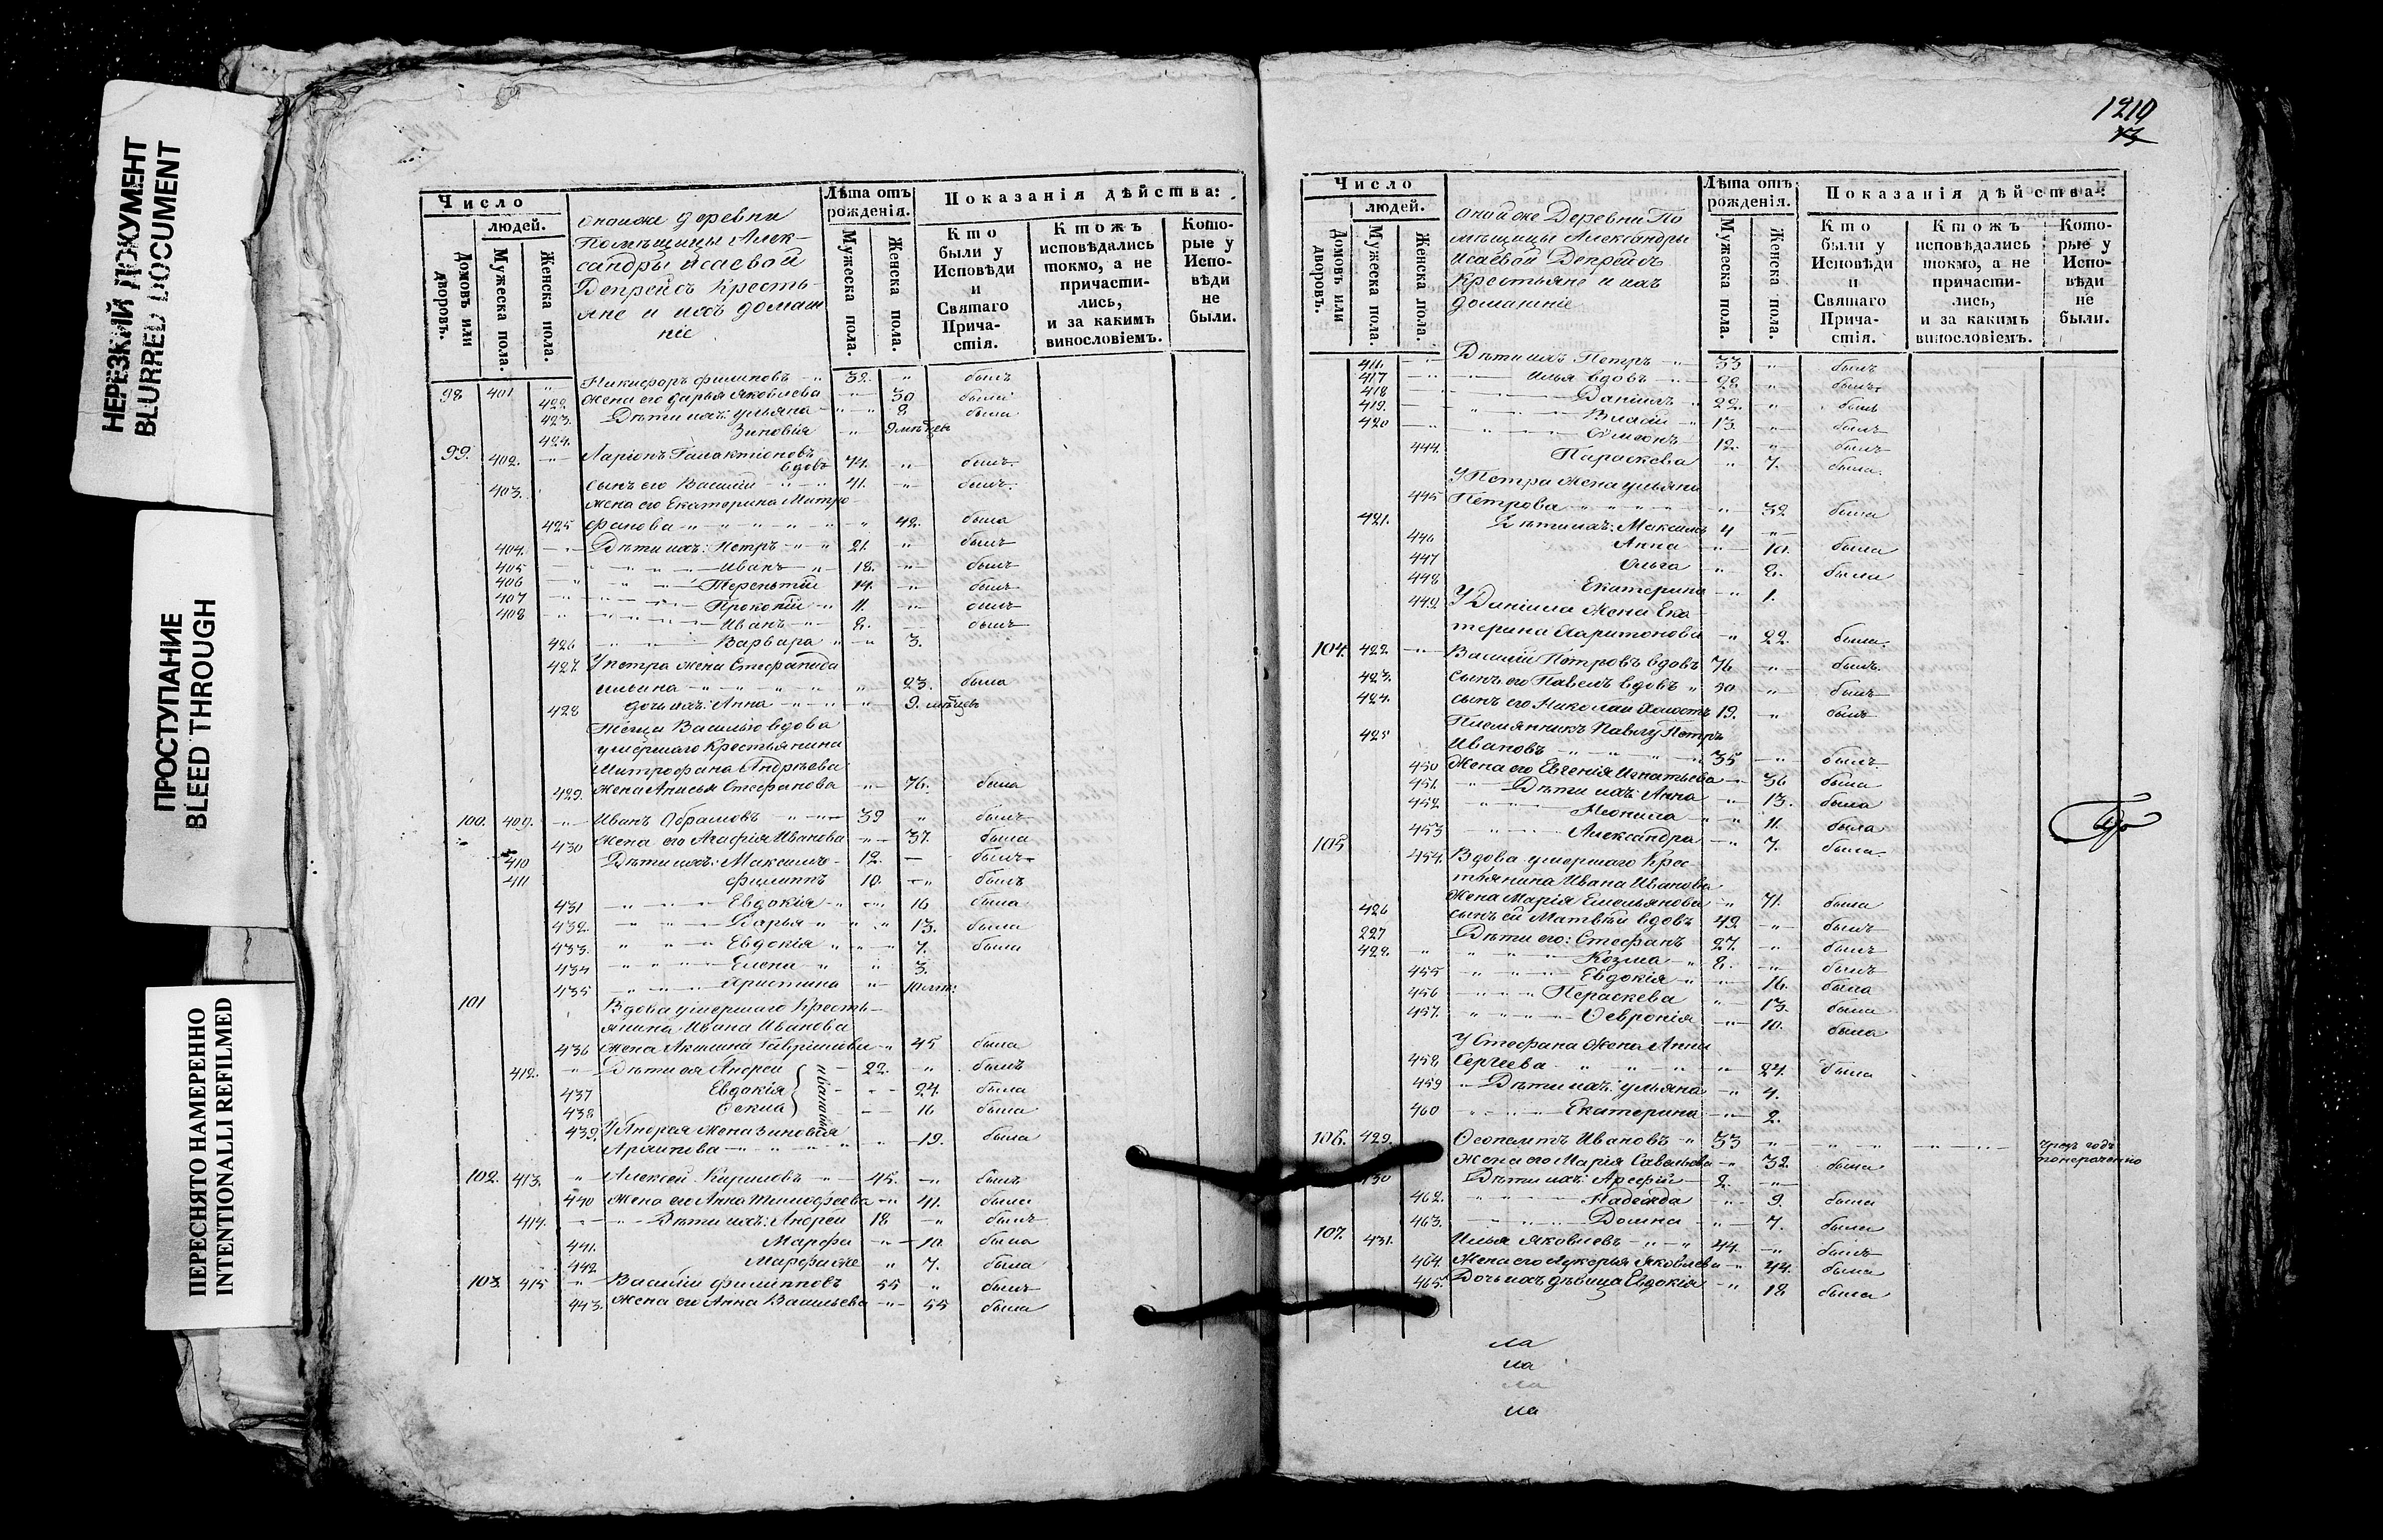 НЕРЕЗКИЙ ДОКУМЕНТ
BLURRED DOCUMENT
ПРОСТУПАНИЕ
BLEED THROUGH
ПЕРЕСНЯТО НАМЕРЕННО
INTENTIONALLI REFILMED
Число
людей.
Домовъ или дворовъ.
Мужеска пола.
Женска пола.
оной же деревни
Помѣщицы Алек-
сандры Исаевой
Депрейсъ Кресть-
яне и ихъ домаш
ніе
Лѣта отъ рожденія.
Мужеска пола.
Женска пола.
Показанія дѣйства:
Кто были у Исповѣди и Святаго Причастія.
Ктожъ исповѣдались токмо, а не причастились, и за какимъ винословіемъ.
Которые у Исповѣди не были.
98 401 " Никифоръ Филиповъ 32. " былъ
422 Жена его Дарья Яковлева " 30 была
423. Дѣти ихъ: Ульяна " 8 была
424. Зиновія " 9 мѣсяцевъ
99. 402. Ларіонъ Галактіоновъ
вдовъ 74. " былъ
403. сынъ его Василій 41. " былъ
Жена его Екатерина Митро-
425 фанова " 42. была
404. Дѣти ихъ: Петръ 21. " былъ
405 Иванъ 18. " былъ
406 Терентій 14. " былъ
407 Прокопій 11. " былъ
408 Иванъ 8. былъ
426 Варвара " 3.
427. У Петра жена Стефанида
Ильина " 23. была
428 дочь ихъ: Анна " 9. мѣсяцевъ
Теща Василью вдова
умершаго Крестьянина
Митрофана Андрѣева
429. жена Анисья Стефанова 76. была
100. 409. Иванъ Абрамовъ 39 " былъ
430 Жена его Агафія Иванова 37. была
410 Дѣти ихъ: Максимъ 12. былъ
411 Филиппъ 10. былъ
431 Евдокія 16 была
432. Дарья 13. была
433. Евдокія 7. была
434 Елена " 3.
435 Христина
101 Вдова умершаго Кресть-
янина Ивана Иванова
436 жена Акилина Гавриилова 45 была
412. Дѣти ея Андрей 22. " былъ
437 Евдокія 24. была
438 Фекла 16 была
Ивановы
439. У Андрея жена Зиновія
Архипова 19. была
102. 413. " Алексѣй Кириловъ 45. былъ
440 Жена его Анна Тимофеева 41. была
414. Дѣти ихъ: Андрей 18 былъ
441. Марфа 10. была
442. Марфа же " 7. была
103. 415 " Василій Филипповъ 55 " былъ
443. Жена его Анна Васильева 55 была
1210
73
Число
людей.
Домовъ или дворовъ.
Мужеска пола.
Женска пола.
оной же Деревни По
мѣщицы Александры
Исаевой Депрейсъ
Крестьяне и ихъ
домашніе
Лѣта отъ рожденія.
Мужеска пола.
Женска пола.
Показанія дѣйства:
Кто были у Исповѣди и Святаго Причастія.
Ктожъ исповѣдались токмо, а не причастились, и за какимъ винословіемъ.
Которые у Исповѣди не были.
416. Дѣти ихъ Петръ 33 " былъ
417 Илья вдовъ 28 " былъ
418 Даніилъ 22. " былъ
419. Власій 13. былъ
420 Симеонъ 12. " былъ
444. Параскева " 7. была.
У Петра жена Ульяна
445 Петрова " 32 была
421. Дѣти ихъ: Максимъ 4
446 Анна 10. была
447 Ольга " 8. была
448 Екатерина 1.
449. У Даніила жена Ека-
терина Харитонова 22. была.
104. 422 Василій Петровъ вдовъ 76 былъ.
423. сынъ его Павелъ вдовъ 50 былъ
424. сынъ его Николай холостъ 19. " былъ
Племянникъ Павлу Петръ
425 Ивановъ 35 былъ
450 Жена его Евгенія Игнатьева 36 была
451. Дѣти ихъ: Анна 13. была
452. Неонила 11. была
453 Александра 7. была.
105 454. Вдова умершаго Крес-
тьянина Ивана Иванова
жена Марія Емельянова " 71. была
426 сынъ ей Матвѣй вдовъ 49. былъ
227 Дѣти его: Стефанъ 27. " былъ
428. Козма 8. былъ
455 Евдокія 16. была
456 Пераскева " 13. была
457. Февронія 10. была
У Стефана жена Анна
458 Сергеева " 24. была
459 Дѣти ихъ: Ульяна " 4.
460 Екатерина 2.
106. 429. Феопемптъ Ивановъ 33 "
Жена его Марія Савельева 32. была.
430 Дѣти ихъ: Арефій 2.
462. Надежда " 9. была
463. Домна " 7. была
107. 431. Илья Яковлевъ 44. " былъ
464. Жена его Лукерья Яковлева 44. была
465. Дочь ихъ дѣвица Евдокія " 18 была
ла
ла
ла
ла